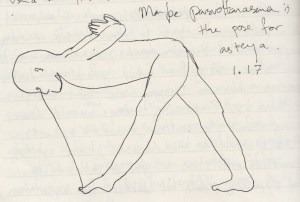 Maybe parsvottanasana is
the pose for
asteya.
1.17